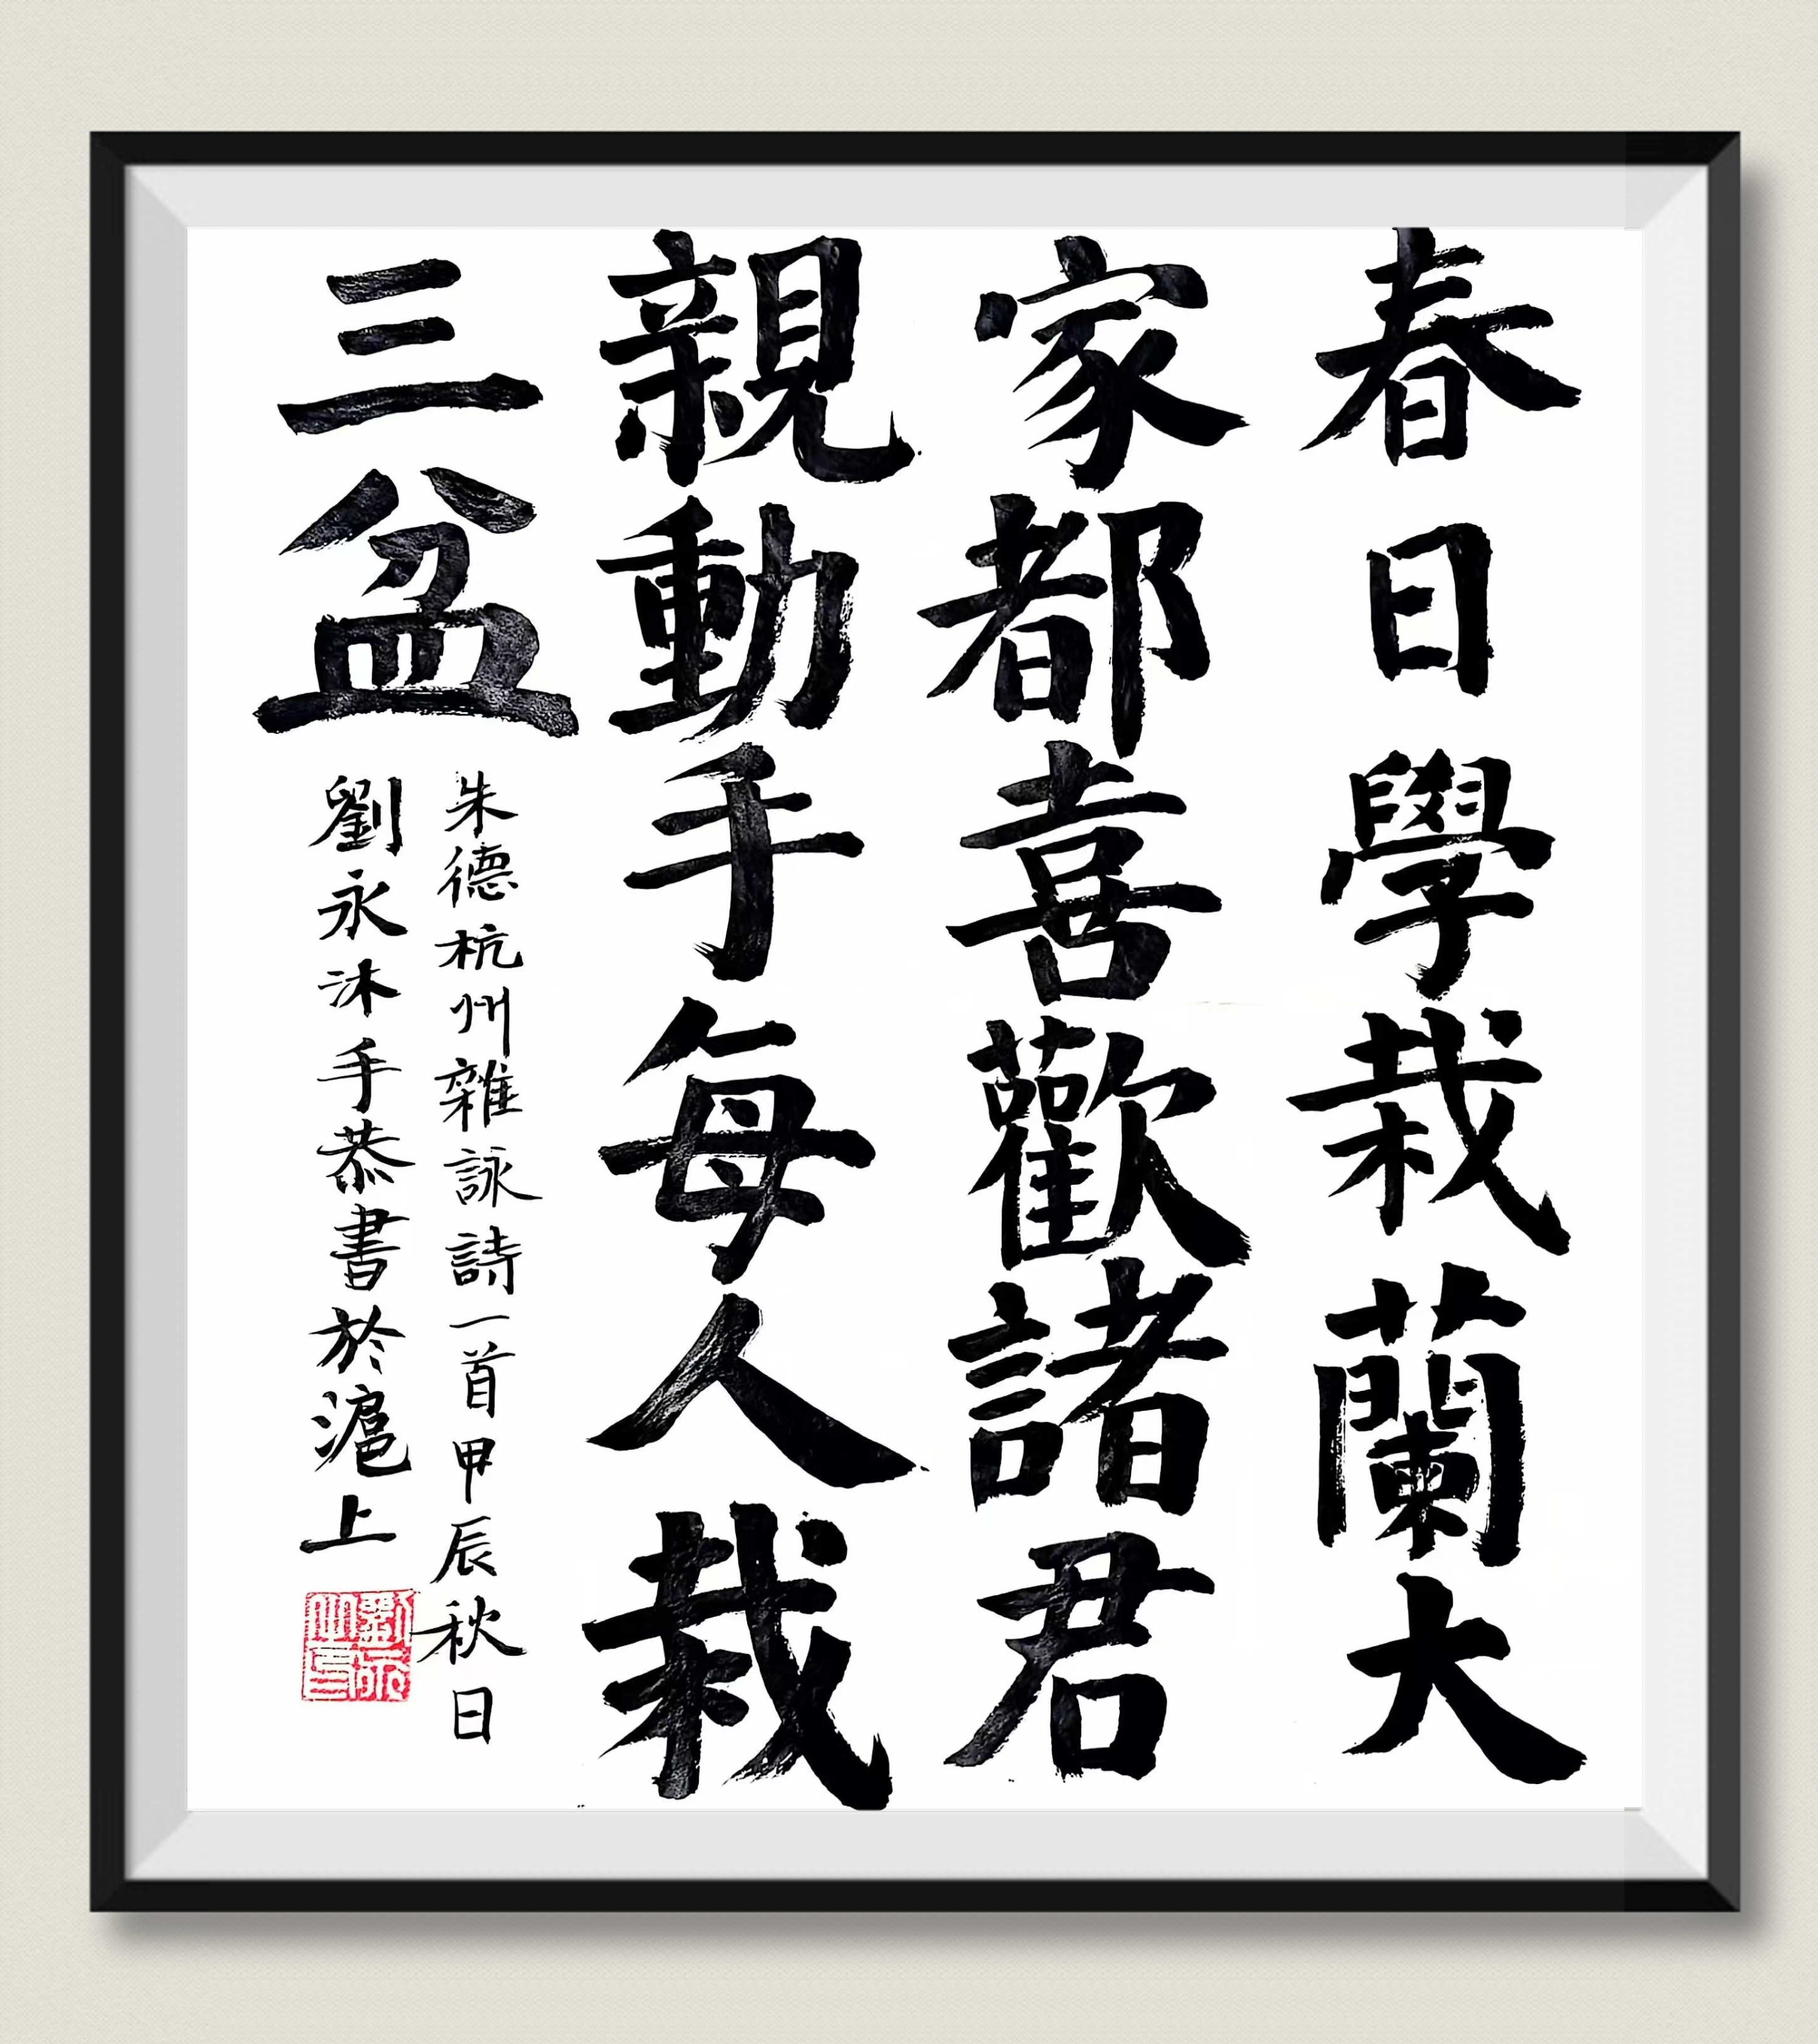 春日學栽蘭大
家都喜歡諸君
親動手每人栽
三盆
朱德杭州雜詠詩一首甲辰秋日
劉永沐手恭書於滬上
劉永之印